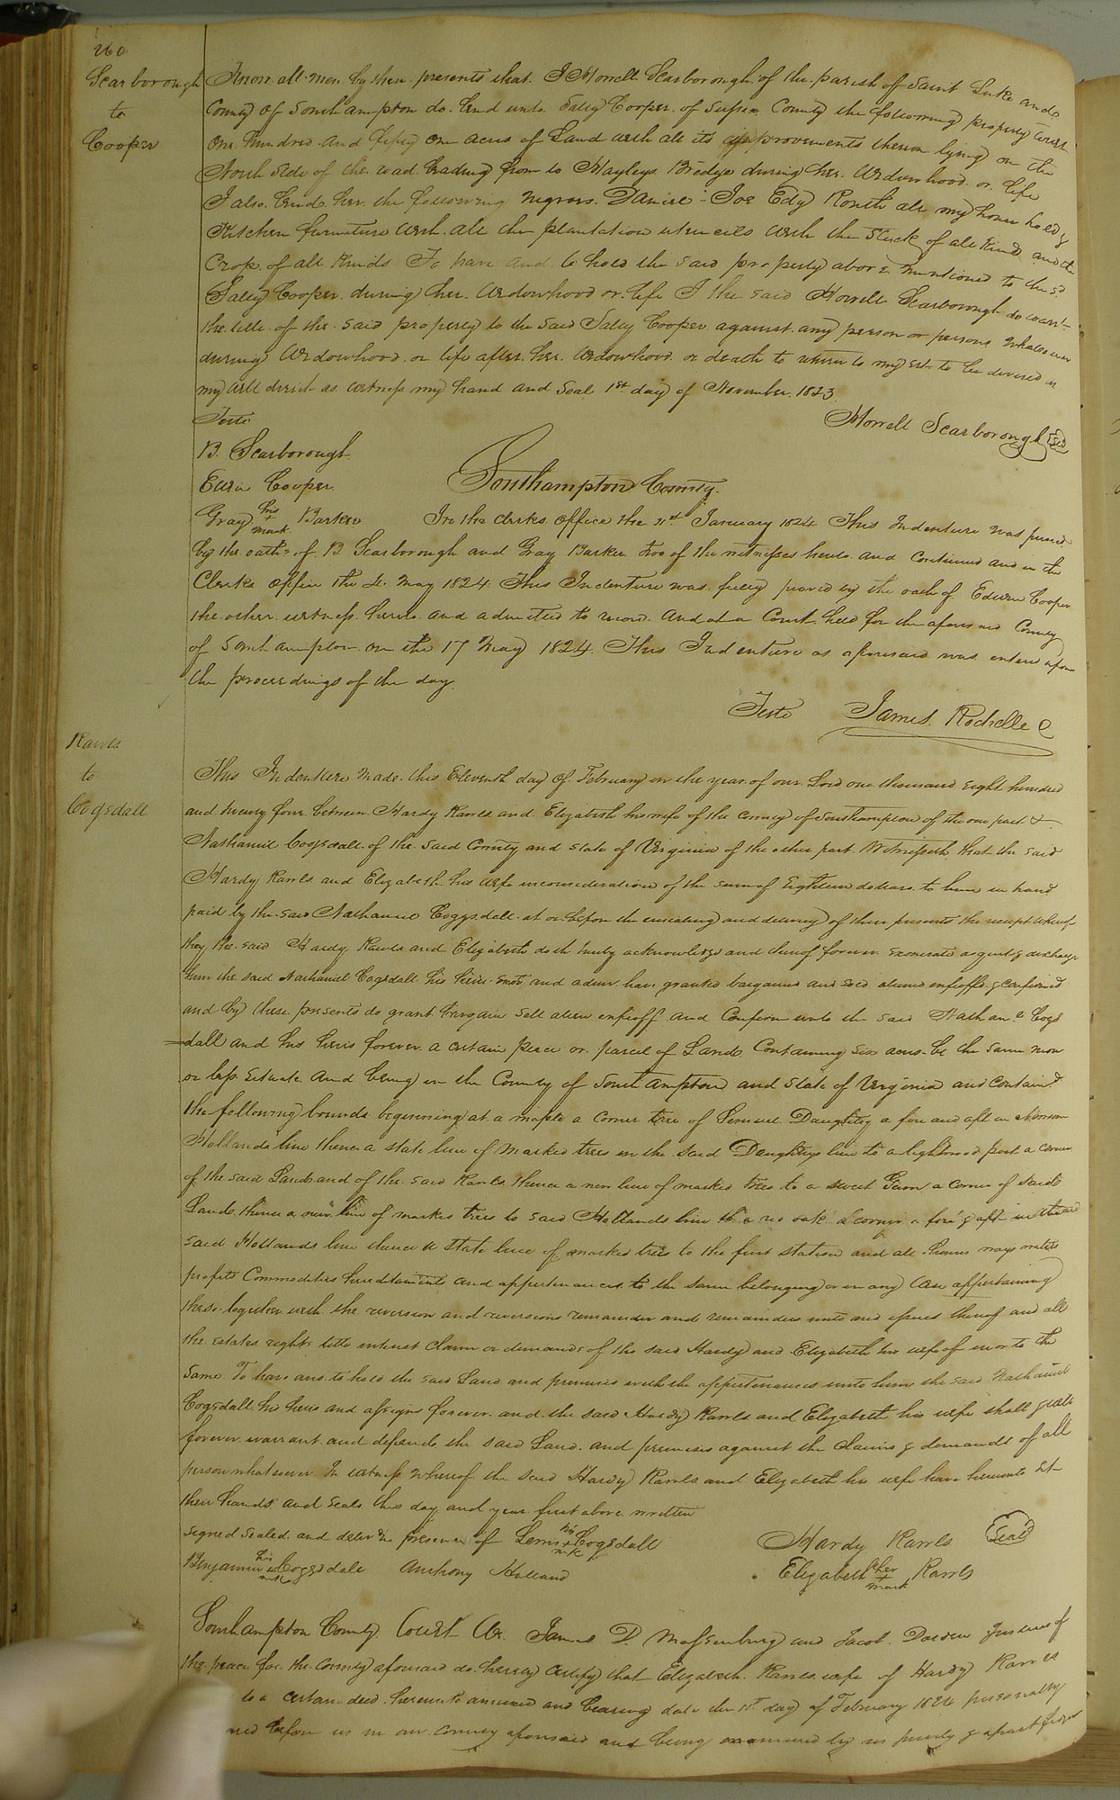 260
Scarborough
to
Cooper
Know all men by these presents that I Howell Scarborough of the parish of Saint Luke and
County of Southampton do lend unto Sally Cooper of Sussex County the following property
One hundred and fifty one acres of Land with all its improvements theron lying on the
North side of the road leading from to Hayleys Bridge during her Widowhood or life
I also lend her the following negroes Daniel Joe Edy all my house hold &
Kitchen furniture with all the plantation utencils with the Stock of all kind and the
Crop of all kinds To have and to hold the said property above mentioned to the sd
Sally Cooper during her Widowhood or life I the said Howell Scarborough do warrt
the title of the said property to the said Sally Cooper against any person or persons whatsoever
during Widowhood or life after her Widowhood or death to return to my Est to be devised as
my will direct as witness my hand and Seal 1st day of November 1823
Teste
Howell Scarborough Seal
B. Scarborough
Edwin Cooper
Southampton County
Gray his + mark Barker
In the clerks office the 31st January 1824 This Indenture was proved
by the oaths of B Scarborough and Gray Barker two of the witnesses hereto and Continued and in the
Clerks office the 4 May 1824 This Indenture was fully proved by the oath of Edwin Cooper
the other witness hereto and admitted to record And at a Court held for the aforesaid County
of Southampton on the 17 May 1824 This Indenture as aforesaid was entered upon
the proceedings of the day
Teste James Rochelle C
Rawls
to
Cogsdall
This Indenture made this Eleventh day of February in the year of our Lord one thousand Eight hundred
and twenty four between Hardy Rawls and Elizabeth his wife of the county of Southampton of the one part &
Nathaniel Cogsdall of the said County and State of Virginia of the other part Witnesseth that the said
Hardy Rawls and Elizabeth his wife in consideration of the sum of Eighteen dollars to him in hand
paid by the said Nathaniel Coggsdall at or before the ensealing and delivery of these presents the receipt whereof
they the said Hardy Rawls and Elizabeth doth hereby acknowledge and thereof forever exonerate acquit & discharge
him the said Nathaniel Cogsdall his heirs and admr have granted bargained and sold aliened enfeoffd & confirmed
and by these presents do grant bargain sell alien enfeoff and Confirm unto the said Nathanl Cogs
=dall and his heirs forever a certain piece or parcel of Land Containing six acres be the same more
or less Situate and being in the County of Southampton and State of Virginia and containd
the following bounds beginning at a maple a corner tree of Daughtry a fore and aft in
Hollands line thence a state line of marked trees in the said Daughtrys line to a lightwood post a corner
of the said Land and of the said Rawls thence a new line of marked trees to a sweet Gum a corner of said
Land thence a new line of marked trees to said Hollands line to a red oak a corner a fore & aft in the said
said Hollands line thence a state line of marked trees to the first station and all houses ways waters
profits Commodities hereditaments and appertenances to the same belonging or in any wise appertaining
these together with the reversion and reversions remainder and remainders rents and issues thereof and all
the estates right title interest claim or demands of the said Hardy and Elizabeth his wife of in or to the
same To have and to hold the said Land and premises with the appertenances unto him the said Nathaniel
Cogsdall his heirs and assigns forever and the said Hardy Rawls and Elizabeth his wife shall
forever warrant and defend the said Land and premises against the claims & demands of all
person whatsoever In witness whereof the said Hardy Rawls and Elizabeth his wife have hereunto set
their hands and seals this day and year first above written
signed sealed and deld in presence of Lewis his + mk Cogsdall
Hardy Rawls Seal
Benjamin his + mark Coggsdale Anthony Holland
Elizabeth her + mark Rawls
Southampton County Court We James D Massenburg and Jacob Darden Justices of
the peace for the County aforesaid do hereby Certify that Elizabeth Rawls wife of Hardy Rawls
to a certain deed hereunto annexed and bearing date the 11th day of February 1824 personally
before us in our County aforesaid and being examined by us privily & apart from